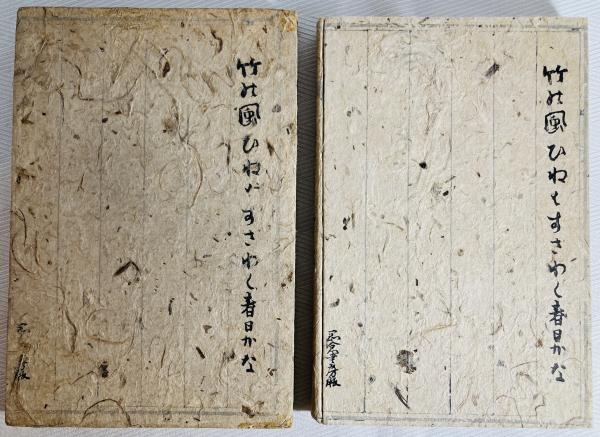 竹の風ひねもすさわく春日かな
竹の風ひねもすさわく春日かな